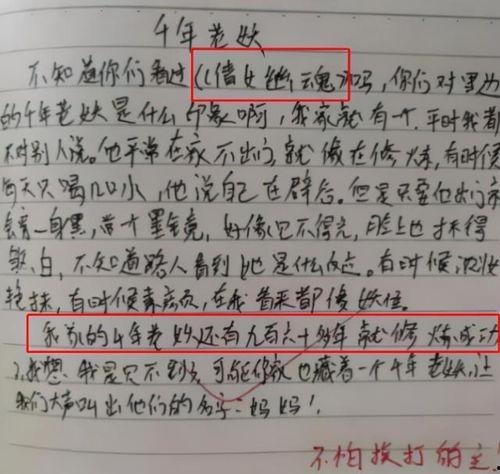 千年老妖
不知道你们看过《倩女幽魂》吗,你们对里边
的千年老妖是什么印象啊,我家就有一个.平时我都
不对别人说。他平常在家不出门,就像在修炼,有时候
每天只喝几口水,他说自己在辟谷。但是只要他出门家
一身黑,带个墨镜,好像见不得光,脸上也抹得
白,不知道路人看到她是什么反应。有时候浓妆
艳抹,有时候素颜,在我看来都像妖怪。
我家的千年老妖还有九百六十多年就修炼成功
了,我想,我是见不到了,可能你家也藏着一个千年老妖,让
我们大声叫出他们的名字-妈妈!
不怕挨打的主.